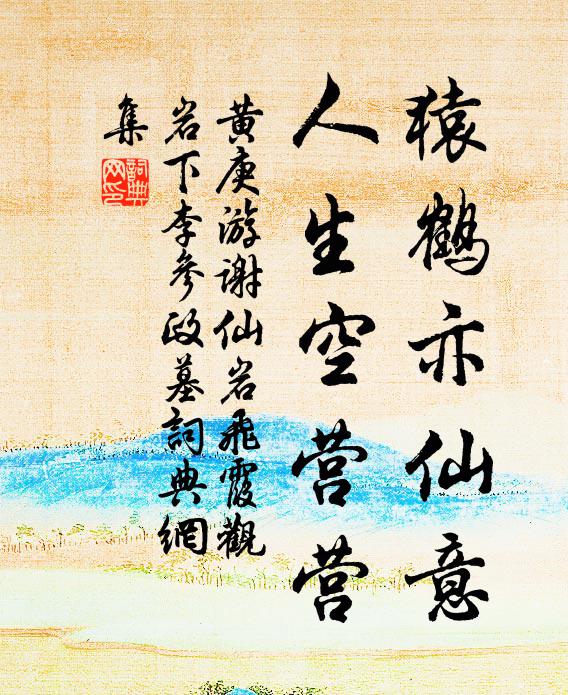 猿鹤亦仙意
人生空营营
黄庚游谢仙岩飛霞觀
岩下李參政墓詞典網
集
詞典
网印